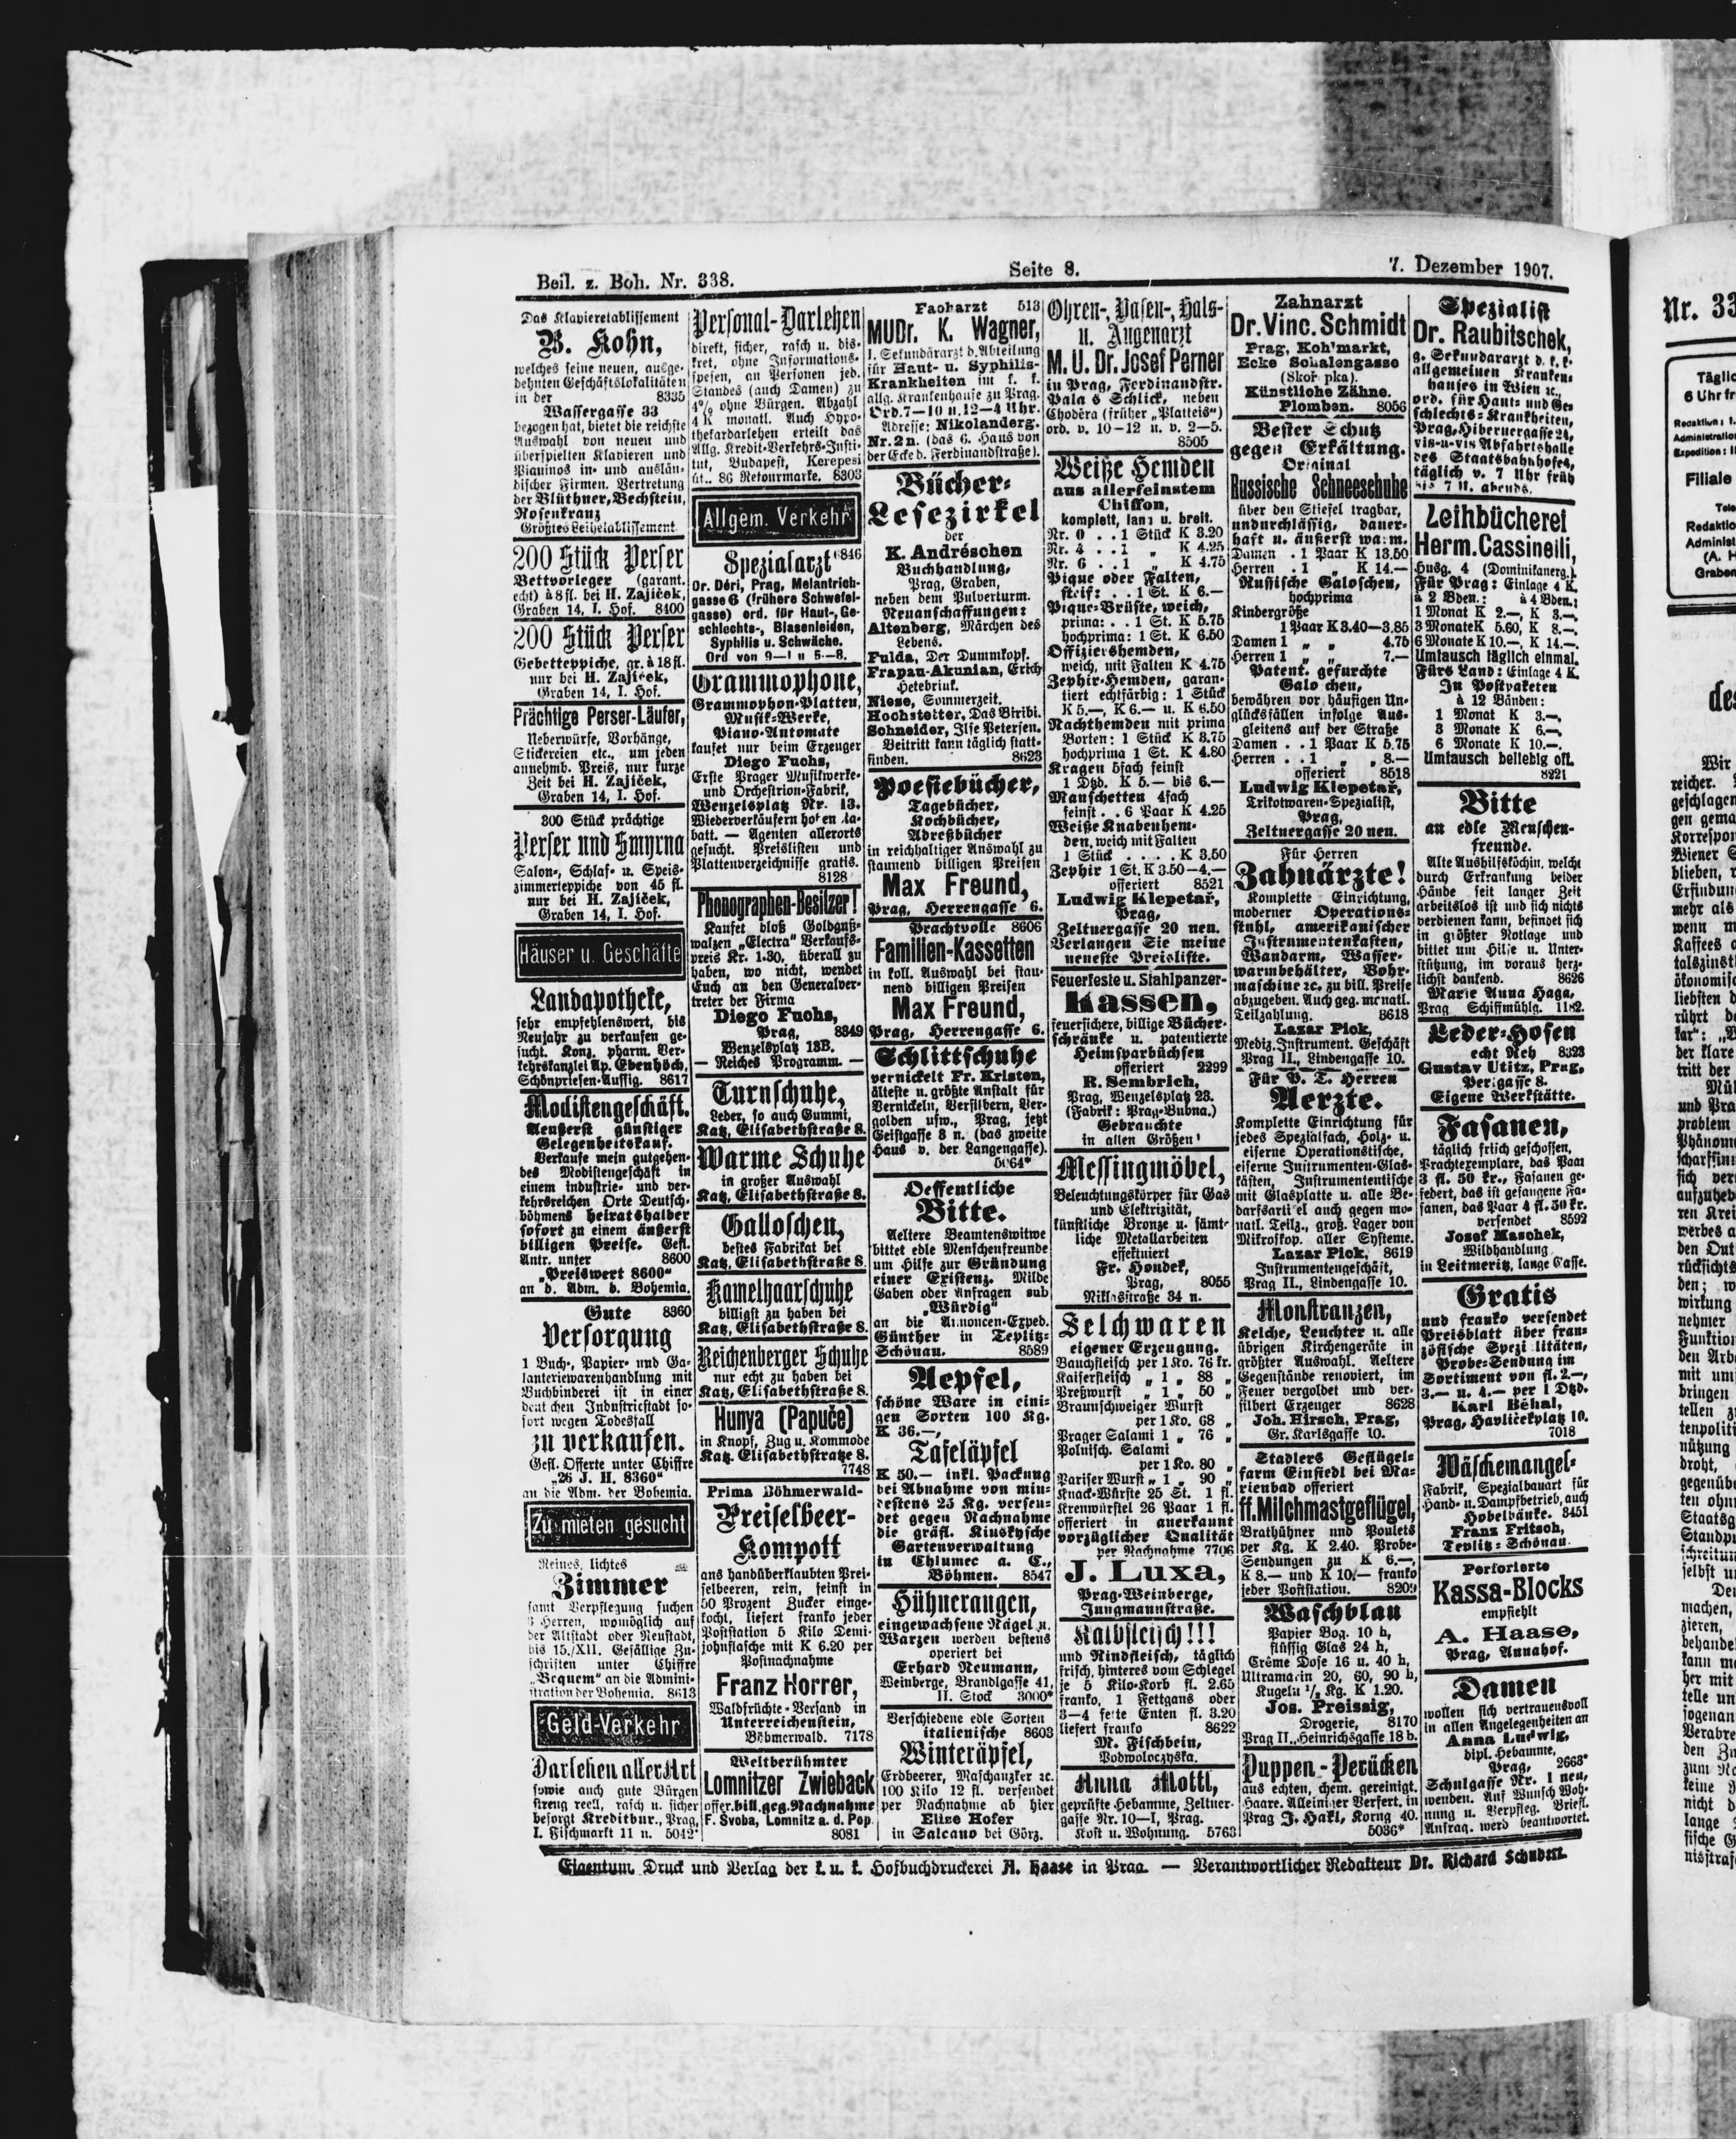 Beil. z. Boh. Nr. 338.
Seite 8.
7. Dezember 1907.
Das Klavieretablissement
B. Kohn,
welches seine neuen, ausge-
dehnten Geschäftslokalitäten
in der 8335
Wassergasse 33
bezogen hat, bietet die reichste
Auswahl von neuen und
überspielten Klavieren und
Pianinos in- und auslän-
discher Firmen. Vertretung
der Blüthner, Bechstein,
Rosenkranz
Größtes Leihetablissement.
200 Stück Perser
Bettvorleger (garant.
echt) à 8 fl. bei H. Zajíček,
Graben 14, I. Hof. 8400
200 Stück Perser
Gebetteppiche, gr. à 18 fl.
nur bei H. Zajíček,
Graben 14, I. Hof.
Prächtige Perser-Läufer,
Ueberwürfe, Vorhänge,
Stickereien etc., um jeden
annehmb. Preis, nur kurze
Zeit bei H. Zajíček,
Graben 14, I. Hof.
300 Stück prächtige
Perser und Smyrna
Salon-, Schlaf- u. Speis-
zimmerteppiche von 45 fl.
nur bei H. Zajíček,
Graben 14, I. Hof.
Häuser u. Geschäfte
Landapotheke,
sehr empfehlenswert, bis
Neujahr zu verkaufen ge-
sucht. Konz. pharm. Ver-
kehrskanzlei Ap. Ebenhöch,
Schönpriesen-Aussig. 8617
Modistengeschäft.
Aeußerst günstiger
Gelegenheitskauf.
Verkaufe mein gutgehen-
des Modistengeschäft in
einem industrie- und ver-
kehrsreichen Orte Deutsch-
böhmens heiratshalber
sofort zu einem äußerst
billigen Preise. Gefl.
Antr. unter 8600
„Preiswert 8600“
an d. Adm. d. Bohemia.
Gute 8360
Versorgung
1 Buch-, Papier- und Ga-
lanteriewarenhandlung mit
Buchbinderei ist in einer
deutschen Industriestadt so-
fort wegen Todesfall
zu verkaufen.
Gefl. Offerte unter Chiffre
„26 J. H. 8360“
an die Adm. der Bohemia.
Zu mieten gesucht
Reines, lichtes
Zimmer
samt Verpflegung suchen
3 Herren, womöglich auf
der Altstadt oder Neustadt,
bis 15./XII. Gefällige Zu-
schriften unter Chiffre
„Bequem“ an die Admini-
stration der Bohemia. 8613
Geld-Verkehr
Darlehen aller Art
sowie auch gute Bürgen
streng reell, rasch u. sicher
besorgt Kreditbur., Prag,
I. Fischmarkt 11 n. 5042*
Personal-Darlehen
direkt, sicher, rasch u. dis-
kret, ohne Informations-
spesen, an Personen jed.
Standes (auch Damen) zu
4% ohne Bürgen. Abzahl
4 K monatl. Auch Hypo-
thekardarlehen erteilt das
Allg. Kredit-Verkehrs-Insti-
tut, Budapest, Kerepesi
út.. 86 Retourmarke. 8303
Allgem. Verkehr
Spezialarzt 6846
Dr. Déri, Prag, Melantrich-
gasse 6 (frühere Schwefel-
gasse) ord. für Haut-, Ge-
schlechts-, Blasenleiden,
Syphilis u. Schwäche.
Ord von 9—1 u 5—8.
Grammophone,
Grammophon-Platten,
Musik-Werke,
Piano-Automate
kaufet nur beim Erzeuger
Diego Fuchs,
Erste Prager Musikwerke-
und Orchestrion-Fabrik,
Wenzelsplatz Nr. 13.
Wiederverkäufern hohen Ra-
batt. — Agenten allerorts
gesucht. Preislisten und
Plattenverzeichnisse gratis.
8128
Phonographen-Besitzer!
Kaufet bloß Goldguß-
walzen „Electra“ Verkaufs-
preis Kr. 1·30, überall zu
haben, wo nicht, wendet
Euch an den Generalver-
treter der Firma
Diego Fuchs,
Prag, 8849
Wenzelsplatz 13B.
— Reiches Programm. —
Turnschuhe,
Leder, so auch Gummi,
Katz, Elisabethstraße 8.
Warme Schuhe
in großer Auswahl
Katz, Elisabethstraße 8.
Galloschen,
bestes Fabrikat bei
Katz, Elisabethstraße 8.
Kamelhaarschuhe
billigst zu haben bei
Katz, Elisabethstraße 8.
Reichenberger Schuhe
nur echt zu haben bei
Katz, Elisabethstraße 8.
Hunya (Papuče)
in Knopf, Zug u. Kommode
Katz. Elisabethstraße 8.
7748
Prima Böhmerwald-
Preiselbeer-
Kompott
aus handüberklaubten Prei-
selbeeren, rein, feinst in
50 Prozent Zucker einge-
kocht, liefert franko jeder
Poststation 5 Kilo Demi-
johnflasche mit K 6.20 per
Postnachnahme
Franz Horrer,
Waldfrüchte-Versand in
Unterreichenstein,
Böhmerwald. 7178
Weltberühmter
Lomnitzer Zwieback
offer. bill. geg. Nachnahme
F. Svoba, Lomnitz a. d. Pop.
8081
Facharzt 513
MUDr. K. Wagner,
I. Sekundärarzt d. Abteilung
für Haut- u. Syphilis-
Krankheiten im k. k.
allg. Krankenhause zu Prag.
Ord. 7—10 u. 12—4 Uhr.
Adresse: Nikolanderg.
Nr. 2 n. (das 6. Haus von
der Ecke d. Ferdinandstraße).
Bücher-
Lesezirkel
der
K. Andréschen
Buchhandlung,
Prag, Graben,
neben dem Pulverturm.
Neuanschaffungen:
Altenberg, Märchen des
Lebens.
Fulda, Der Dummkopf.
Frapan-Akunian, Erich
Hetebrink.
Niese, Sommerzeit.
Hochstetter, Das Biribi.
Schneider, Ilse Petersen.
Beitritt kann täglich statt-
finden. 8623
Poesiebücher,
Tagebücher,
Kochbücher,
Adreßbücher
in reichhaltiger Auswahl zu
staunend billigen Preisen
Max Freund,
Prag, Herrengasse 6.
Prachtvolle 8606
Familien-Kassetten
in koll. Auswahl bei stau-
nend billigen Preisen
Max Freund,
Prag, Herrengasse 6.
Schlittschuhe
vernickelt Fr. Kristen,
älteste u. größte Anstalt für
Vernickeln, Versilbern, Ver-
golden usw., Prag, jetzt
Geistgasse 8 n. (das zweite
Haus v. der Langengasse).
5064*
Oeffentliche
Bitte.
Aeltere Beamtenswitwe
bittet edle Menschenfreunde
um Hilfe zur Gründung
einer Existenz. Milde
Gaben oder Anfragen sub
„Würdig“
an die Annoncen-Exped.
Günther in Teplitz-
Schönau. 8589
Aepfel,
schöne Ware in eini-
gen Sorten 100 Kg.
K 36.—,
Tafeläpfel
K 50.— inkl. Packung
bei Abnahme von min-
destens 25 Kg. versen-
det gegen Nachnahme
die gräfl. Kinskysche
Gartenverwaltung
in Chlumec a. C.,
Böhmen. 8547
Hühneraugen,
eingewachsene Nägel u.
Warzen werden bestens
operiert bei
Erhard Neumann,
Weinberge, Brandlgasse 41,
II. Stock 3000*
Verschiedene edle Sorten
italienische 8603
Winteräpfel,
Erdbeerer, Maschanzker ꝛc.
100 Kilo 12 fl. versendet
per Nachnahme ab hier
Elise Hofer
in Salcano bei Görz.
Ohren-, Nasen-, Hals-
u. Augenarzt
M. U. Dr. Josef Perner
in Prag, Ferdinandstr.
Palais Schlick, neben
Chodèra (früher „Platteis“)
ord. v. 10-12 u. v. 2—5.
8505
Weiße Hemden
aus allerfeinstem
Chiffon,
komplett, lang u. breit.
Nr. 0 . . 1 Stück K 3.20
Nr. 4 . . 1 „ K 4.25
Nr. 6 . . 1 „ K 4.75
Pique oder Falten,
steif: . . 1 St. K 6.—
Pique-Brüste, weich,
prima: . . 1 St. K 5.75
hochprima: 1 St. K 6.50
Offiziershemden,
weich, mit Falten K 4.75
Zephir-Hemden, garan-
tiert echtfärbig: 1 Stück
K 5.—, K 6.— u. K 6.50
Nachthemden mit prima
Borten: 1 Stück K 3.75
hochprima 1 St. K 4.80
Kragen 5fach feinst
1 Dtzd. K 5.— bis 6.—
Manschetten 4fach
feinst . . 6 Paar K 4.25
Weiße Knabenhem-
den, weich mit Falten
1 Stück . . . . K 3.50
Zephir 1 St. K 3.50—4.—
offeriert 8521
Ludwig Klepetař,
Prag,
Zeltnergasse 20 neu.
Verlangen Sie meine
neueste Preisliste.
Feuerfeste u. Stahlpanzer-
Kassen,
feuersichere, billige Bücher-
schränke u. patentierte
Heimsparbüchsen
offeriert 2299
R. Sembrich,
Prag, Wenzelsplatz 23.
(Fabrik: Prag-Bubna.)
Gebrauchte
in allen Größen!
Messingmöbel,
Beleuchtungskörper für Gas
und Elektrizität,
künstliche Bronze u. sämt-
liche Metallarbeiten
effektuiert
Fr. Houdek,
Prag, 8055
Niklasstraße 34 n.
Selchwaren
eigener Erzeugung.
Bauchfleisch per 1 Ko. 76 kr.
Kaiserfleisch „ 1 „ 88 „
Preßwurst „ 1 „ 50 „
Braunschweiger Wurst
per 1 Ko. 68 „
Prager Salami 1 „ 76 „
Polnisch. Salami
per 1 Ko. 80 „
Pariser Wurst „ 1 „ 90 „
Knack-Würste 25 St. 1 fl.
Krenwürstel 26 Paar 1 fl.
offeriert in anerkannt
vorzüglicher Qualität
per Nachnahme 7706
J. Luxa,
Prag-Weinberge,
Jungmannstraße.
Kalbfleisch!!!
und Rindfleisch, täglich
frisch, hinteres vom Schlegel
je 5 Kilo-Korb fl. 2.65
franko, 1 Fettgans oder
3—4 fette Enten fl. 3.20
liefert franko 8622
M. Fischbein,
Podwoloczyska.
Anna Mottl,
geprüfte Hebamme, Zeltner-
gasse Nr. 10—I, Prag.
Kost u. Wohnung. 5763
Zahnarzt
Dr. Vinc. Schmidt
Prag, Kohlmarkt,
Ecke Schalengasse
(Skořepka).
Künstliche Zähne.
Plomben. 8056
Bester Schutz
gegen Erkältung.
Original
Russische Schneeschuhe
über den Stiefel tragbar,
undurchlässig, dauer-
haft u. äußerst warm.
Damen . 1 Paar K 13.50
Herren . 1 „ K 14.—
Russische Galoschen,
hochprima
Kindergröße
1 Paar K 3.40—3.85
Damen 1 „ „ 4.75
Herren 1 „ „ 7.—
Patent. gefurchte
Galoschen,
bewähren vor häufigen Un-
glücksfällen infolge Aus-
gleitens auf der Straße
Damen . . 1 Paar K 5.75
Herren . . 1 „ „ 8.—
offeriert 8518
Ludwig Klepetař,
Trikotwaren-Spezialist,
Prag,
Zeltnergasse 20 neu.
Für Herren
Zahnärzte!
Komplette Einrichtung,
moderner Operations-
stuhl, amerikanischer
Instrumentenkasten,
Wandarm, Wasser-
warmbehälter, Bohr-
maschine ꝛc. zu bill. Preise
abzugeben. Auch geg. monatl.
Teilzahlung. 8618
Lazar Pick,
Mediz. Instrument. Geschäft
Prag II., Lindengasse 10.
Für P. T. Herren
Aerzte.
Komplette Einrichtung für
jedes Spezialfach, Holz- u.
eiserne Operationstische,
eiserne Instrumenten-Glas-
kästen, Instrumententische
mit Glasplatte u. alle Be-
darfsartikel auch gegen mo-
natl. Teilz., groß. Lager von
Mikroskop. aller Systeme.
Lazar Pick, 8619
Instrumentengeschäft,
Prag II., Lindengasse 10.
Monstranzen,
Kelche, Leuchter u. alle
übrigen Kirchengeräte in
größter Auswahl. Aeltere
Gegenstände renoviert, im
Feuer vergoldet und ver-
silbert Erzeuger 8628
Joh. Hirsch, Prag,
Gr. Karlsgasse 10.
Stadlers Geflügel-
farm Einsiedl bei Ma-
rienbad offeriert
ff. Milchmastgeflügel,
Brathühner und Poulets
per Kg. K 2.40. Probe-
Sendungen zu K 6.—,
K 8.— und K 10.— franko
jeder Poststation. 8209
Waschblau
Papier Bog. 10 h,
flüssig Glas 24 h,
Crême Dose 16 u. 40 h,
Ultramarin 20, 60, 90 h,
Kugeln ½ Kg. K 1.20.
Jos. Preissig,
Drogerie, 8170
Prag II., Heinrichsgasse 18 b.
Puppen-Perücken
aus echten, chem. gereinigt.
Haare. Alleiniger Verfert. in
Prag J. Hakl, Korng 40.
5036*
Spezialist
Dr. Raubitschek,
g. Sekundararzt d. k. k.
allgemeinen Kranken-
hauses in Wien ꝛc.,
ord. für Haut- und Ge-
schlechts-Krankheiten,
Prag, Hibernergasse 24,
vis-u-vis Abfahrtshalle
des Staatsbahnhofes,
täglich v. 7 Uhr früh
bis 7 U. abends.
Leihbücherei
Herm. Cassinelli,
Husg. 4 (Dominikanerg.).
Für Prag: Einlage 4 K.
à 2 Bden.: à 4 Bden.:
1 Monat K 2.—, K 3.—,
3 Monate K 5.60, K 8.—,
6 Monate K 10.—, K 14.—.
Umtausch täglich einmal.
Fürs Land: Einlage 4 K.
In Postpaketen
à 12 Bänden:
1 Monat K 3.—,
3 Monate K 6.—,
6 Monate K 10.—.
Umtausch beliebig oft.
8221
Bitte
an edle Menschen-
freunde.
Alte Aushilfsköchin, welche
durch Erkrankung beider
Hände seit langer Zeit
arbeitslos ist und sich nichts
verdienen kann, befindet sich
in größter Notlage und
bittet um Hilfe u. Unter-
stützung, im voraus herz-
lichst dankend. 8626
Marie Anna Haga,
Prag Schiffmühlg. 1182.
Leder-Hosen
echt Reh 8323
Gustav Utitz, Prag,
Perlgasse 8.
Eigene Werkstätte.
Fasanen,
täglich frisch geschossen,
Prachtexemplare, das Paar
3 fl. 50 kr., Fasanen ge-
federt, das ist gefangene Fa-
sanen, das Paar 4 fl. 50 kr.
versendet 8592
Josef Maschek,
Wildhandlung
in Leitmeritz, lange Gasse.
Gratis
und franko versendet
Preisblatt über fran-
zösische Spezialitäten,
Probe-Sendung im
Sortiment von fl. 2.—,
3.— u. 4.— per 1 Dtzd.
Karl Béhal,
Prag, Havlíčekplatz 10.
7018
Wäschemangel-
Fabrik, Spezialbauart für
Hand- u. Dampfbetrieb, auch
Hobelbänke. 3451
Franz Fritsch,
Teplitz-Schönau.
Perforierte
Kassa-Blocks
empfiehlt
A. Haase,
Prag, Annahof.
Damen
wollen sich vertrauensvoll
in allen Angelegenheiten an
Anna Ludwig,
dipl. Hebamme,
Prag, 2663*
Schulgasse Nr. 1 neu,
wenden. Auf Wunsch Woh-
nung u. Verpfleg. Briefl.
Anfrag. werd beantwortet.
Eigentum. Druck und Verlag der k. u. k. Hofbuchdruckerei A. Haase in Prag. — Verantwortlicher Redakteur Dr. Richard Schubert.
Nr. 33
Täglic
6 Uhr fr
Redaktion: I.
Administratio
Expedition: II
Filiale
Tele
Redaktio
Administ
(A. H
Graben
des
Wir
reicher.
geschlagen
gen gema
Korrespon
Wiener
blieben,
Erfindun
mehr als
wenn
Kaffees
talszinst
ökonomisc
liebsten
rührt
der klare
tritt der
und Pra
problem
Phänome
scharfsinn
sich
aufzuheb
ren Krei
werbes a
den Out
rücksichts
den;
wirkung
nehmer
Funktion
den Arbe
mit uns
bringen
tellen
tenpoliti
nützung
droht,
gegenübe
ten ohn
Staatsg
Standpu
schreitun
selbst
machen,
zieren,
behande
kann
her mit
telle
sogenan
Verabre
den Zu
zum
keine
nicht
lange
fische
nisstraf